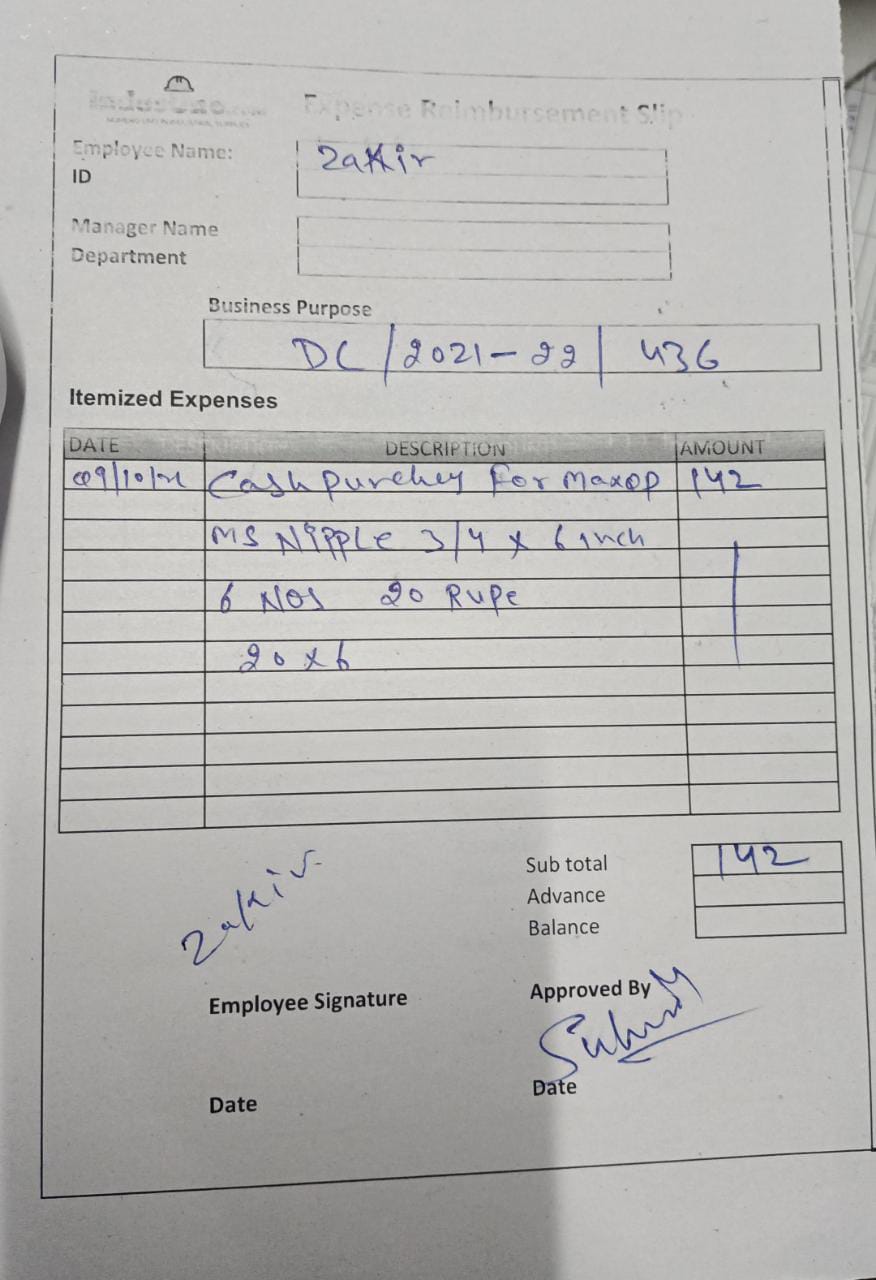 Expense Reimbursement Slip
Employee Name: Zakir
ID
Manager Name
Department
Business Purpose
DC/2021-22/436
Itemized Expenses
DATE DESCRIPTION AMOUNT
09/10/21 Cash purchey For maxop 142
MS Nipple 3/4 x 6 inch
6 NOS 20 Rupe
20 x 6
Sub total 142
Advance
Balance
Zakir
Employee Signature Approved By
Date Date